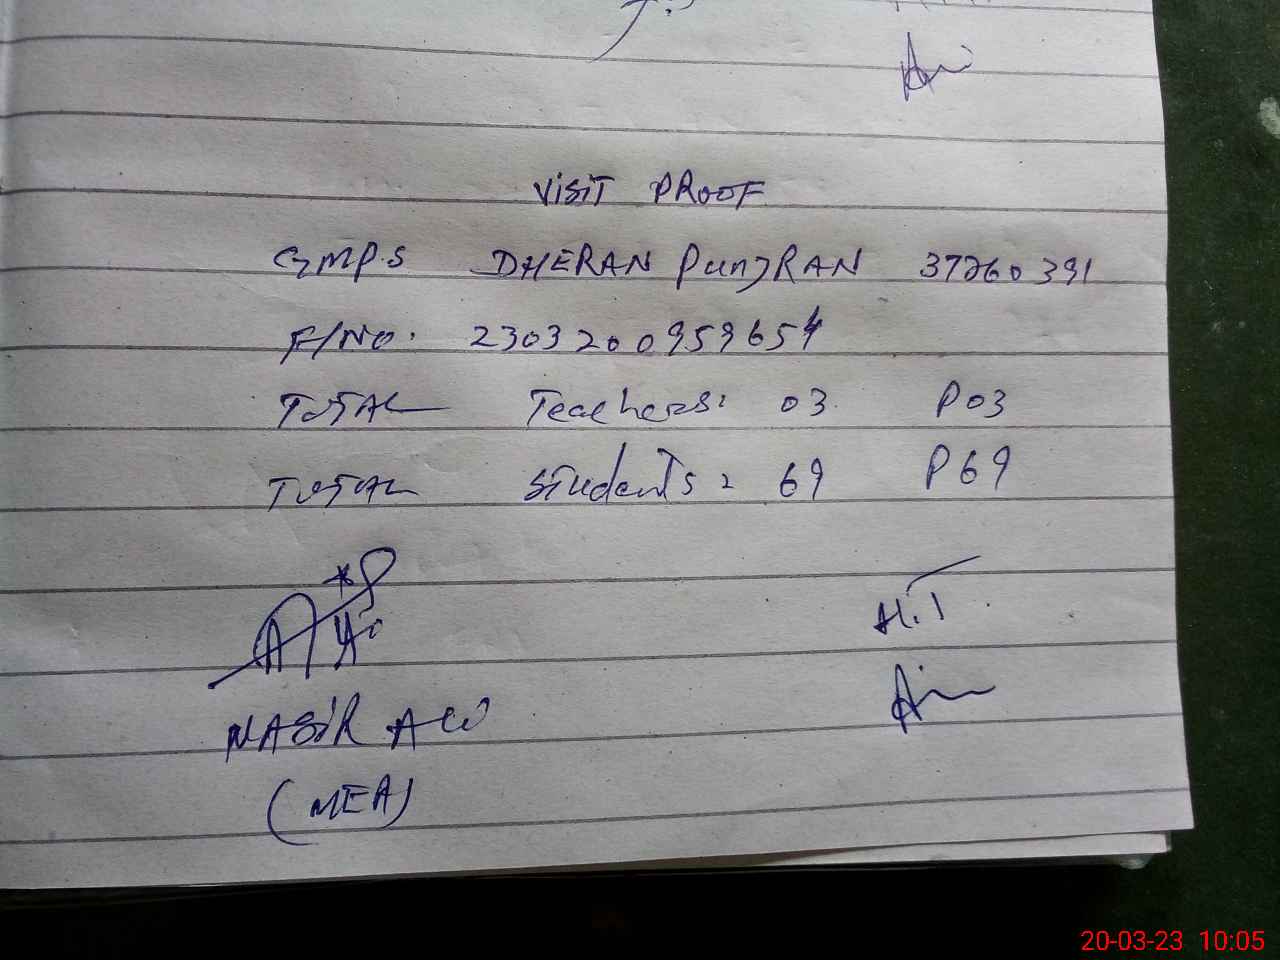 VISIT PROOF
GMP.S DHERAN PunJRAN 37260391
F/NO. 2303200959654
TOTAL Teachers: 03 P03
TOTAL Students: 69 P69
H.T
NASIR ALI
(MEA)
20-03-23 10:05